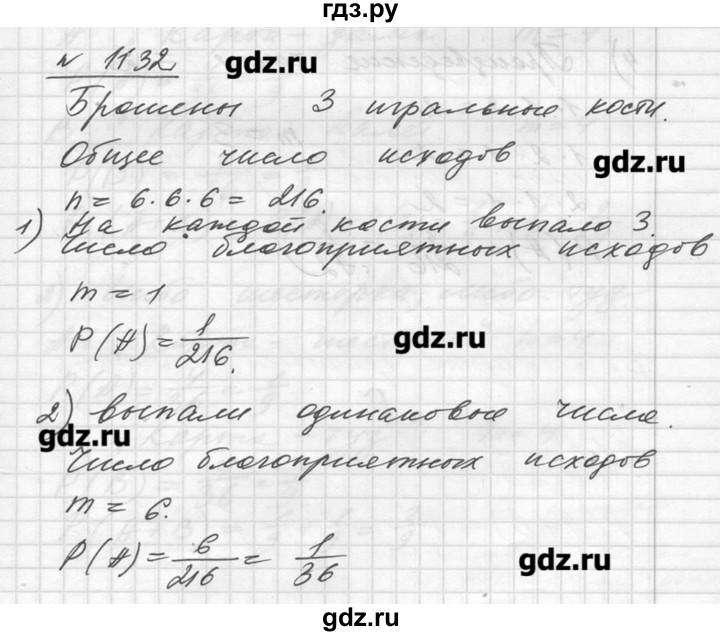 гдз.ру
№ 1132
gdz.ru
Брошены 3 игральные кости.
Общее число исходов
gdz.ru
n = 6·6·6 = 216.
1) На каждой кости выпало 3.
Число благоприятных исходов
m = 1
P(A) = 1/216.
gdz.ru
2) выпали одинаковые числа.
gdz.ru
Число благоприятных исходов
m = 6.
P(A) = 6/216 = 1/36
gdz.ru
gdz.ru